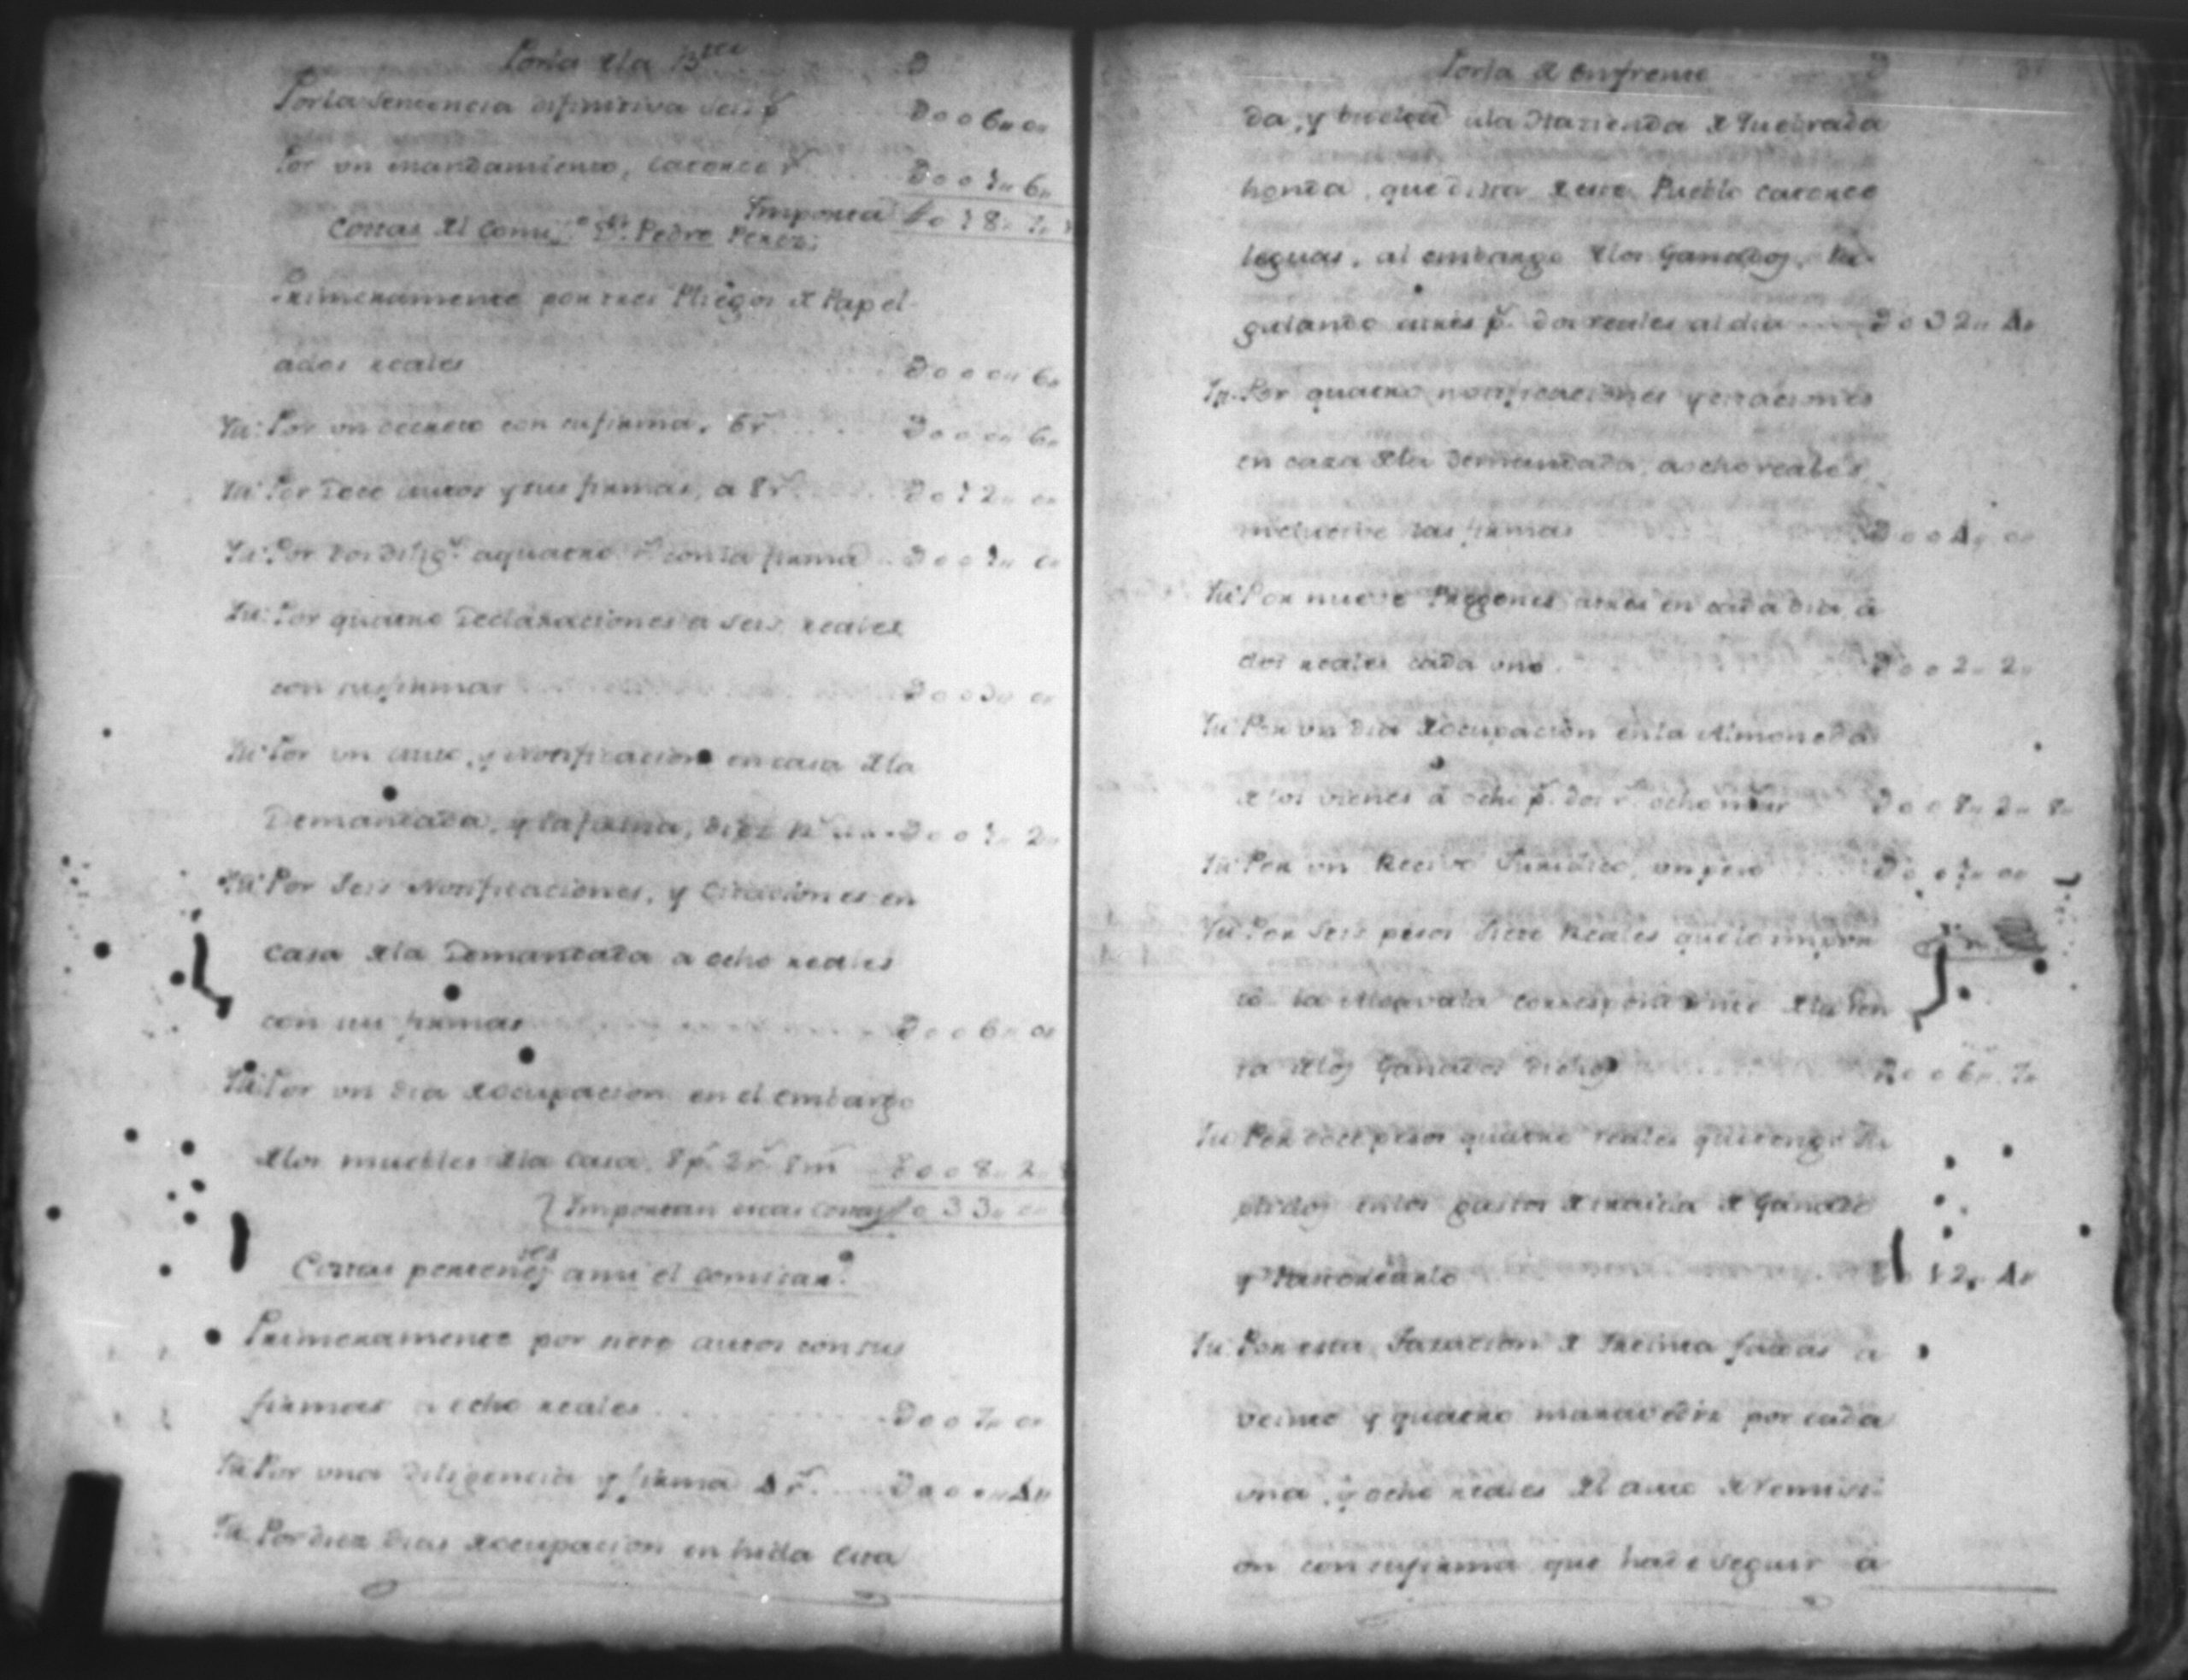 Por la sentencia difinitiva seis p.s D006,,00
Por un mandamiento, catorce r.s D001,,6,,
Importa
Costas del Comis.o D.n Pedro Perez:
Primeramente por tres Pliegos de Papel
a dos reales D000,,6,,
Yt. Por un decreto con su firma, 6 r.s D000,,6,,
Yt. Por Doce autos y sus firmas, a 8 r.s D012,,00
Yt. Por dos dilig.s a quatro r.s con la firma D001,,00
Yt. Por quatro Declaraciones a seis reales
con sus firmas D003,,00
Yt. Por un auto, y Notificacion en casa de la
Demandada, y la firma, diez r.s D001,,2,,
Yt. Por Seis Notificaciones, y Citaciones en
casa de la Demandada a ocho reales
con sus firmas D006,,00
Yt. Por un dia de ocupacion en el embargo
de los muebles de la Casa, 8 p.s 2 r.s 8 m.s D008,,2,,
Importan estas costas 033,,00
Costas pertenes.tes a mi el comisar.o
Primeramente por siete autos con sus
firmas a ocho reales D007,,00
Yt. Por una diligencia y firma 4 r.s D000,,4,,
Yt. Por diez dias de ocupacion en hida esta
Por la de enfrente D
da, y buelta a la Hazienda de Quebrada
honda, que dista de este Pueblo catorce
leguas, al embargo de los Ganados, re-
gulando a tres p.s dos reales al dia D032,,4,,
Yt. Por quatro notificaciones y citaciones
en casa de la Demandada, a ocho reales,
inclusive las firmas D004,,00
Yt. Por nueve Pregones a tres en cada dia, a
dos reales cada uno D002,,2,,
Yt. Por un dia de ocupacion en la Almoneda
de los vienes a ocho p.s dos r.s ocho mrs D008,,2,,8,,
Yt. Por un Recivo Juridico, un peso D001,,00
Yt. Por Seis pesos Siete Reales que lo impor
tó la Alcavala correspondiente de la Ven
ta de los Ganados dichos D006,,7,,
Yt. Por doce pesos quatro reales que tengo su
plidos en los gastos de traida de Ganado
y 012,,4,,
Yt. Por esta Tasacion de Treinta fojas a
veinte y quatro maravediz por cada
una, y ocho reales del auto de remisi-
on con su firma que hace seguir a